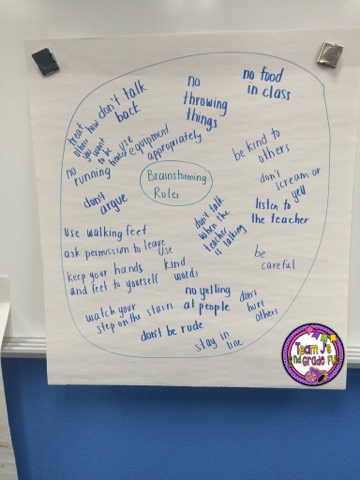 don't talk
back
no
throwing
things
no food
in class
treat
others how
you want
to be
treated
use
equipment
appropriately
be kind to
others
no
running
Brainstorming
Rules
don't
scream or
yell
don't
argue
don't talk
when the
teacher
is talking
listen to
the teacher
use walking feet
ask permission to leave
use
kind
words
be
careful
keep your hands
and feet to yourself
no yelling
at people
don't
hurt
others
watch your
step on the stairs
don't be rude
stay in
line
Team J's
2nd Grade Fun